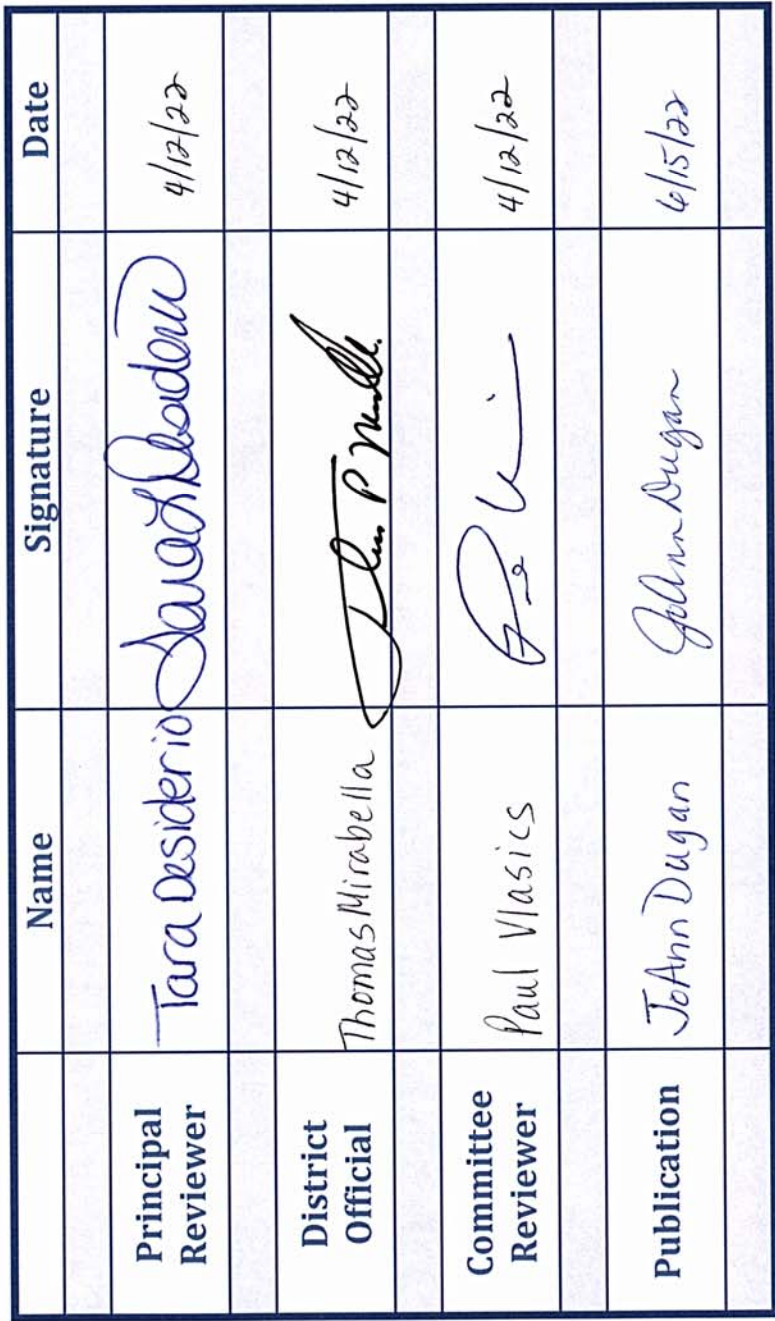 Name Signature Date
Principal
Reviewer
Tara Desiderio Tara L Desiderio 4/12/22
District
Official
Thomas Mirabella 4/12/22
Committee
Reviewer
Paul Vlasics 4/12/22
Publication JoAnn Dugan JoAnn Dugan 6/15/22